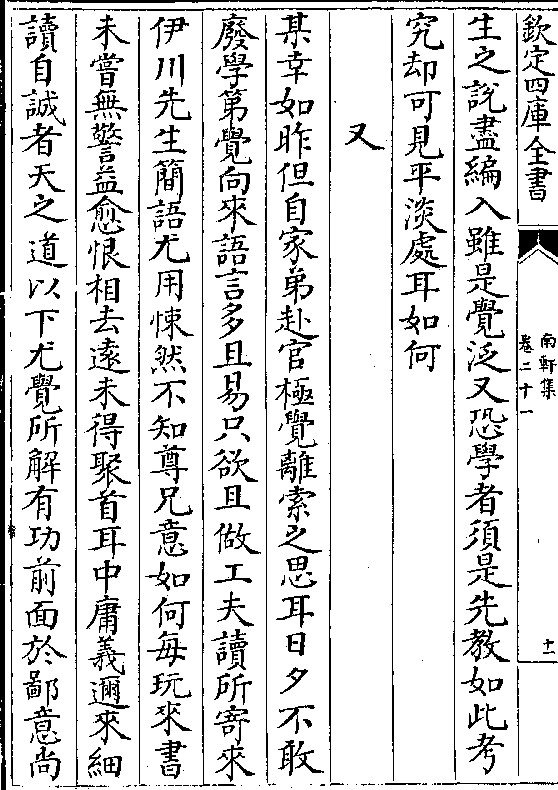 欽定四庫全書
南軒集
卷二十一
十一
生之說盡編入雖是覺泛又恐學者須是先教如此考
究却可見平淡處耳如何
又
某幸如昨但自家弟赴官極覺離索之思耳日夕不敢
廢學第覺向來語言多且易只欲且做工夫讀所寄來
伊川先生簡語尤用悚然不知尊兄意如何每玩來書
未嘗無警益愈恨相去遠未得聚首耳中庸義邇來細
讀自誠者天之道以下尤覺所解有功前面於鄙意尚